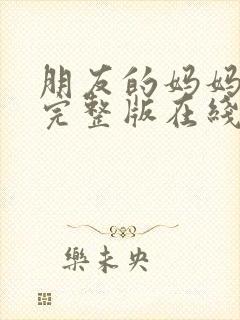 朋友的妈妈
完整版在线
樂未央